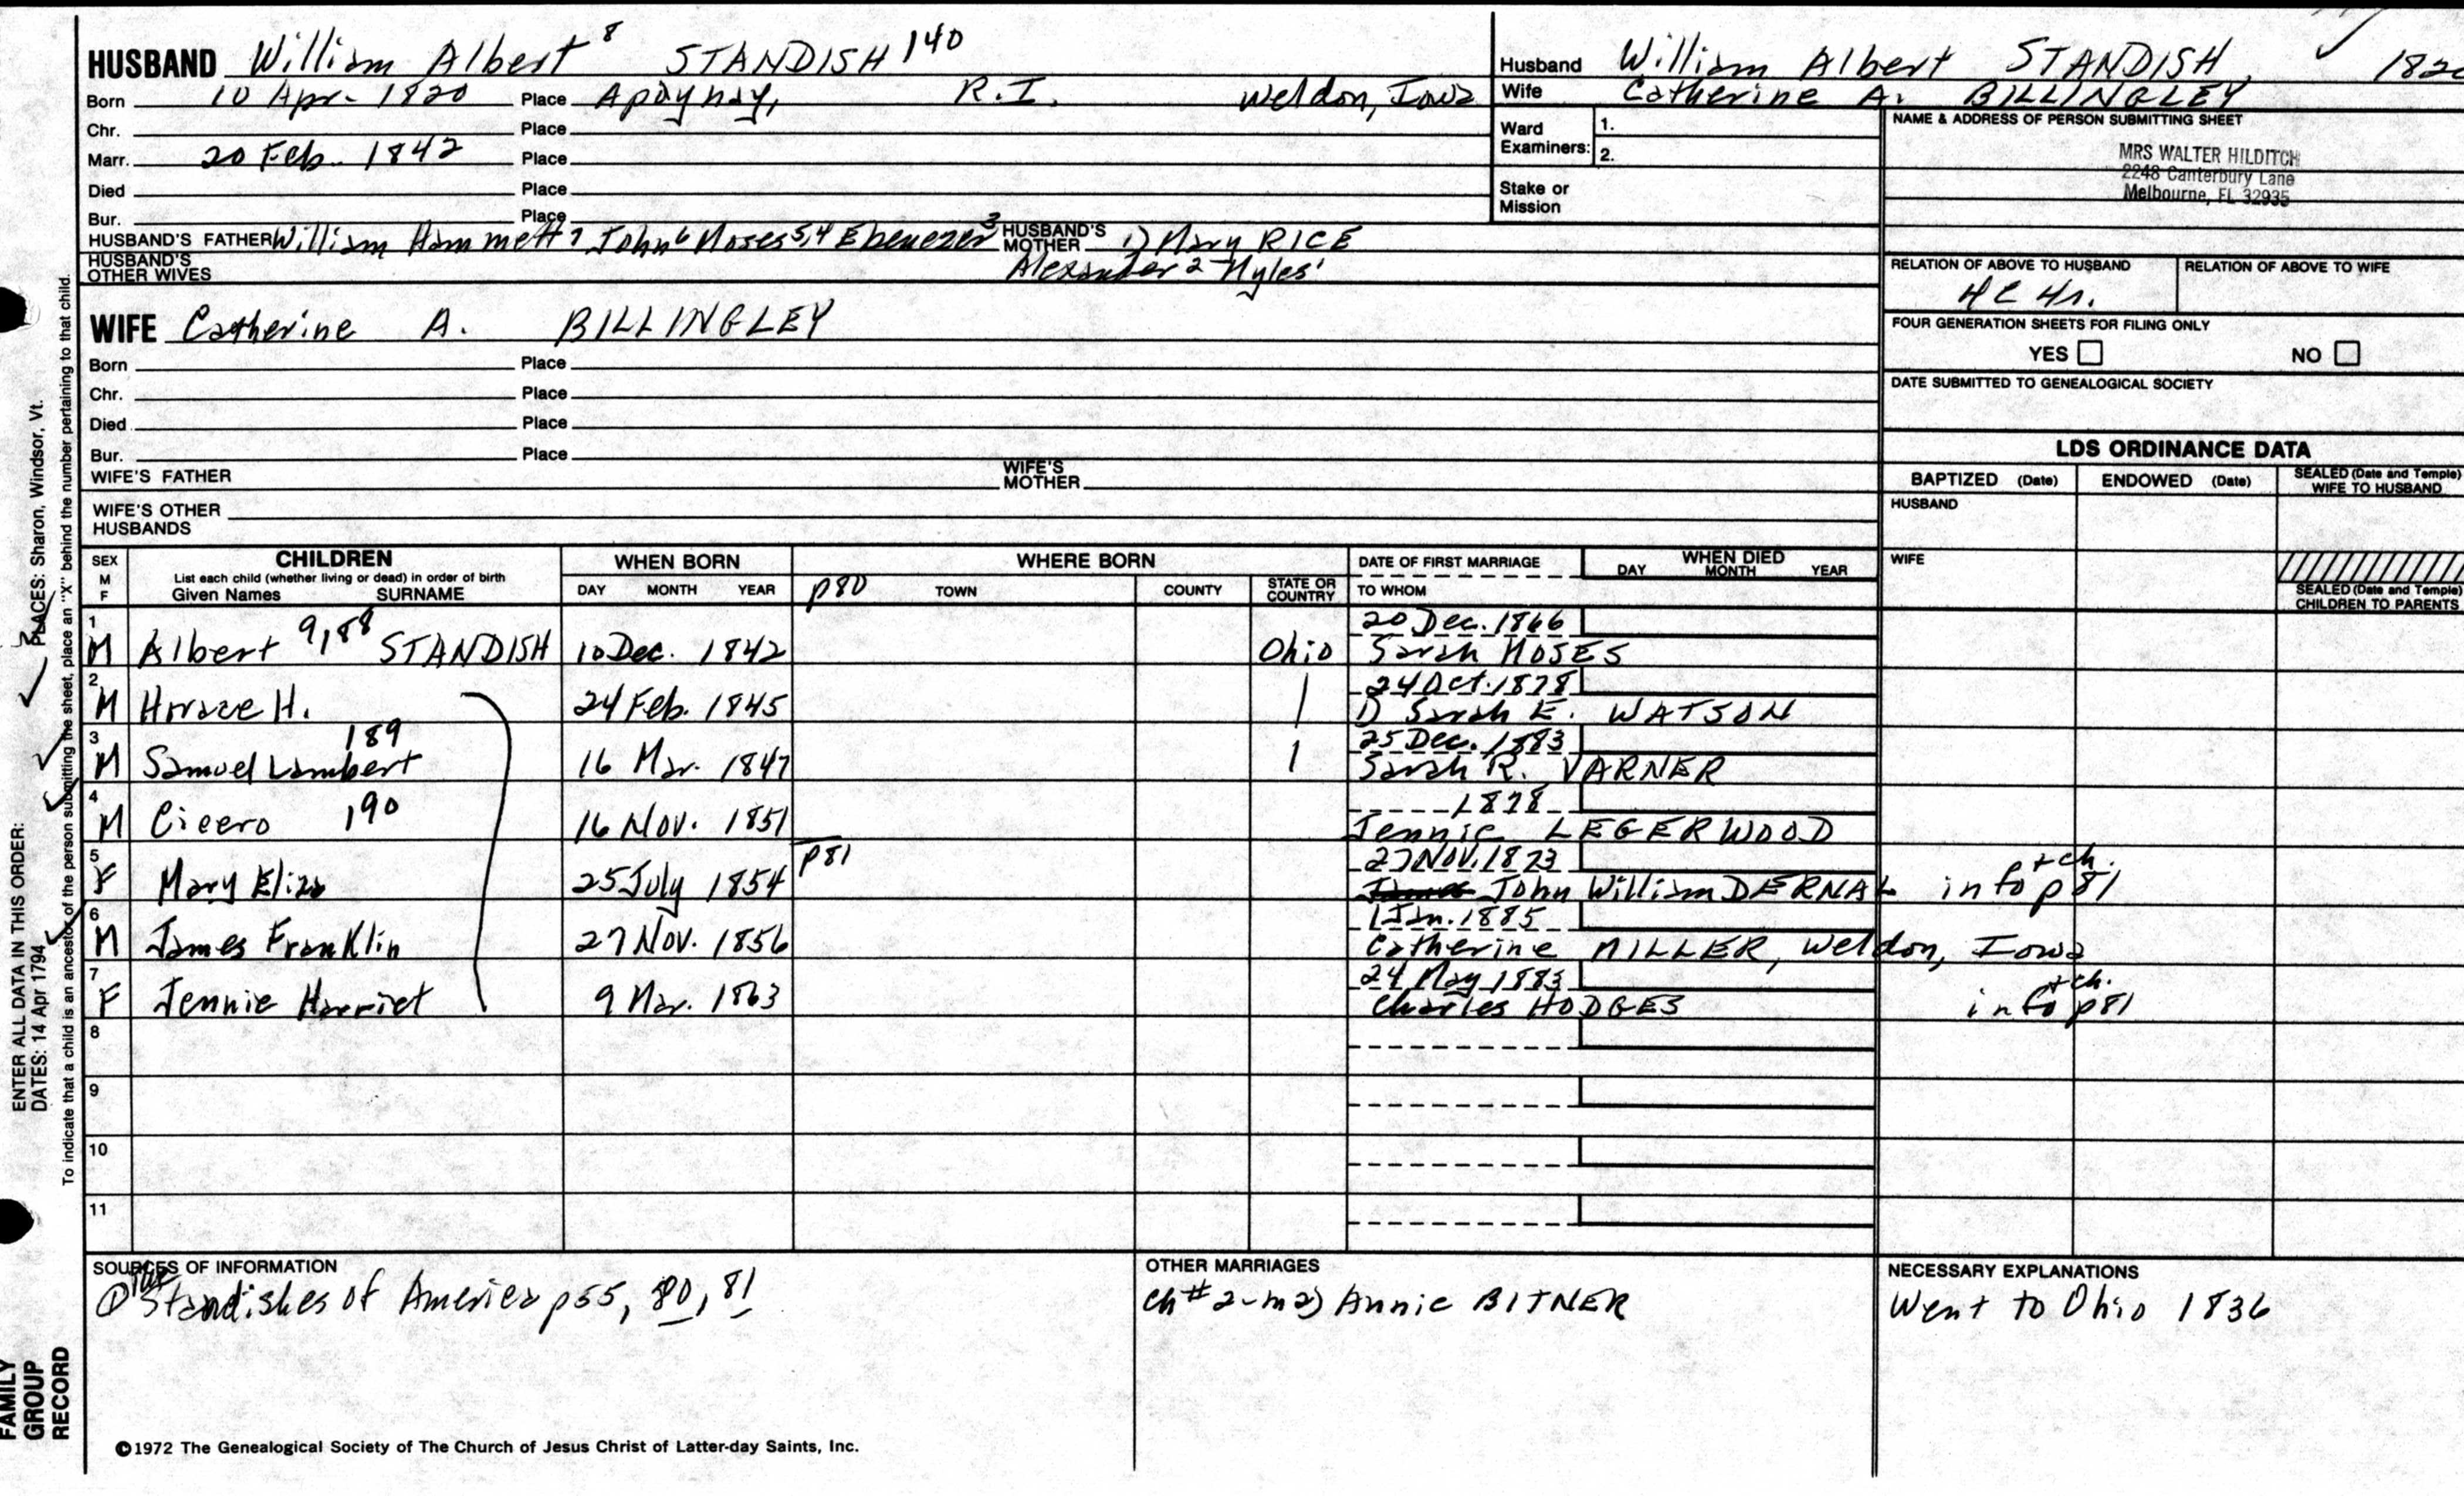 HUSBAND William Albert 8 STANDISH 140
Born 10 Apr. 1820 Place Apaynay, R.I. Weldon, Iowa
Chr. Place
Marr. 20 Feb. 1842 Place
Died Place
Bur. Place
HUSBAND'S FATHER William Hammett 7 John 6 Moses 5,4 Ebenezer 3 HUSBAND'S MOTHER 1) Mary RICE
HUSBAND'S OTHER WIVES Alexander 2 - Myles 1
Husband William Albert STANDISH, 1820
Wife Catherine A. BILLINGLEY
Ward Examiners: 1.
2.
Stake or Mission
NAME & ADDRESS OF PERSON SUBMITTING SHEET
MRS WALTER HILDITCH
2248 Canterbury Lane
Melbourne, FL 32935
RELATION OF ABOVE TO HUSBAND RELATION OF ABOVE TO WIFE
4C 4r.
FOUR GENERATION SHEETS FOR FILING ONLY
YES NO
DATE SUBMITTED TO GENEALOGICAL SOCIETY
WIFE Catherine A. BILLINGLEY
Born Place
Chr. Place
Died Place
Bur. Place
WIFE'S FATHER WIFE'S MOTHER
WIFE'S OTHER HUSBANDS
LDS ORDINANCE DATA
BAPTIZED (Date) ENDOWED (Date) SEALED (Date and Temple) WIFE TO HUSBAND
HUSBAND
WIFE
SEALED (Date and Temple) CHILDREN TO PARENTS
SEX M F CHILDREN WHEN BORN WHERE BORN DATE OF FIRST MARRIAGE WHEN DIED
List each child (whether living or dead) in order of birth DAY MONTH YEAR
Given Names SURNAME DAY MONTH YEAR p80 TOWN COUNTY STATE OR COUNTRY TO WHOM
1 20 Dec. 1866
M Albert 9,188 STANDISH 10 Dec. 1842 Ohio Sarah MOSES
2 24 Oct. 1878
M Horace H. 24 Feb. 1845 | 1) Sarah E. WATSON
3 189 25 Dec. 1883
M Samuel Lambert 16 Mar. 1847 | Sarah R. VARNER
4 190 1878
M Cicero 16 Nov. 1851 Jennie LEGERWOOD
5 p81 27 Nov. 1873 + ch.
F Mary Eliza 25 July 1854 John William DERNAL info p81
6 1 Jan. 1885
M James Franklin 27 Nov. 1856 Catherine MILLER, Weldon, Iowa
7 24 May 1883 + ch.
F Jennie Harriet 9 Mar. 1863 Charles HODGES info p81
8
9
10
11
SOURCES OF INFORMATION
① The Standishes of America p55, 80, 81
OTHER MARRIAGES
ch # 2 - m 2) Annie BITNER
NECESSARY EXPLANATIONS
Went to Ohio 1836
©1972 The Genealogical Society of The Church of Jesus Christ of Latter-day Saints, Inc.
FAMILY
GROUP
RECORD
ENTER ALL DATA IN THIS ORDER:
DATES: 14 Apr 1794 PLACES: Sharon, Windsor, Vt.
To indicate that a child is an ancestor of the person submitting the sheet, place an "X" behind the number pertaining to that child.